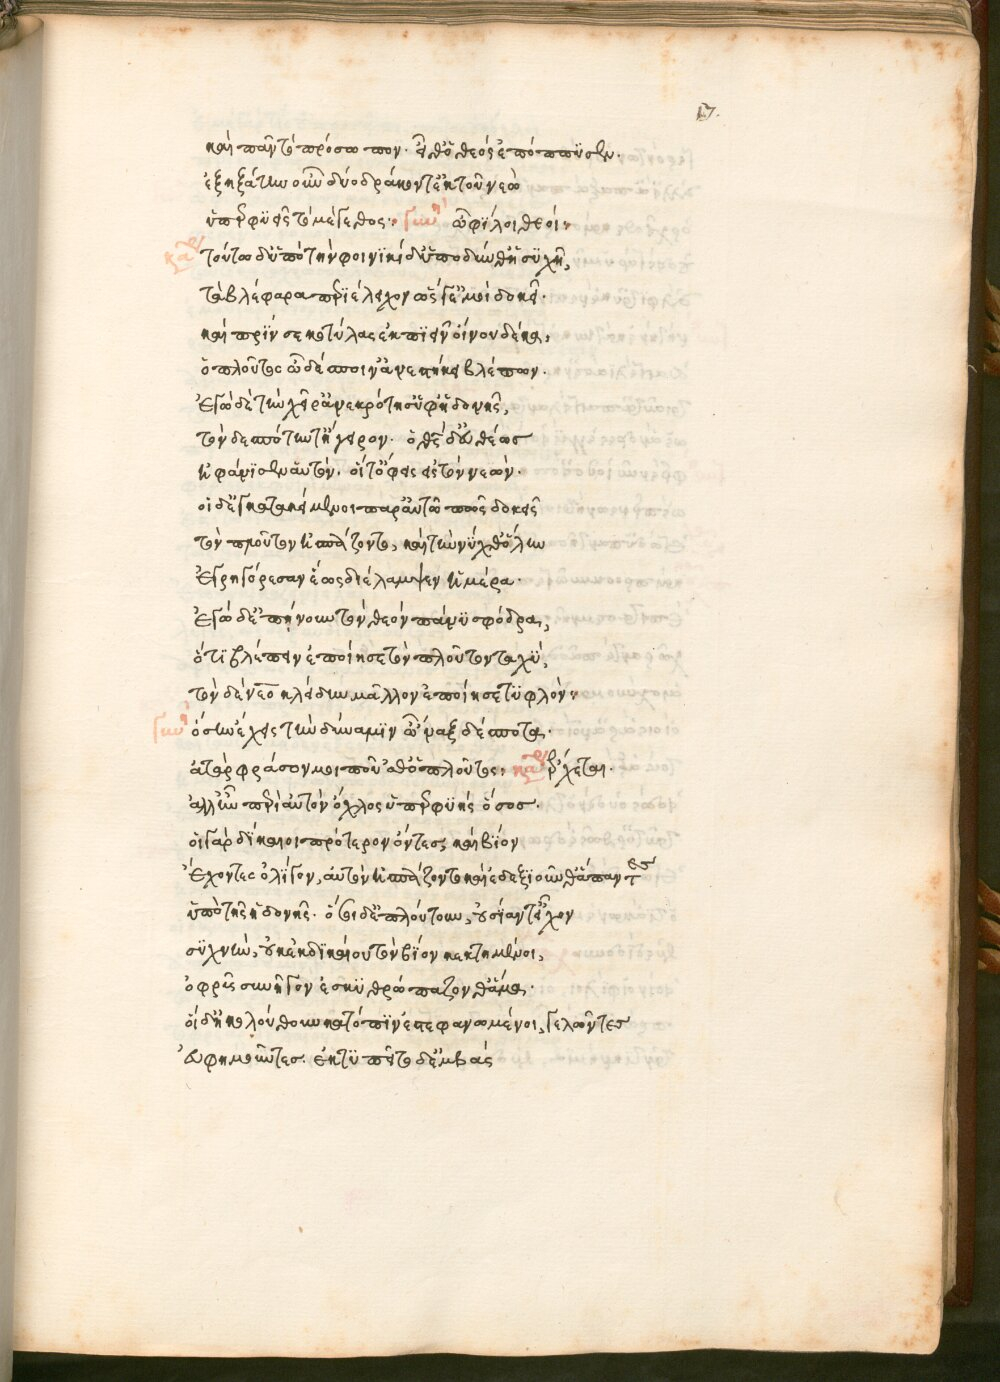 17.
καὶ πᾶν τὸ πρόσωπον. εἶθ' ὁ θεὸς ἐπόππυσεν.
ἐξῃξάτην οὖν δύο δράκοντ' ἐκ τοῦ νεὼ
ὑπερφυεῖς τὸ μέγεθος: γυνὴ ὦ φίλοι θεοί:
καρ τούτω δ' ὑπὸ τὴν φοινικίδ' ὑποδύνθ' ἡσυχῆ,
τὰ βλέφαρα περιέλειχον ὥς γέ μοι δοκεῖ.
καὶ πρίν σε κοτύλας ἐκπιεῖν οἴνου δέκα,
ὁ πλοῦτος ὦ δέσποιν' ἀνεστήκει βλέπων.
ἐγὼ δὲ τὼ χεῖρ' ἀνεκρότησ' ὑφ' ἡδονῆς,
τὸν δεσπότην τ' ἤγειρον. ὁ θεὸς δ' εὐθέως
ἠφάνισεν αὑτὸν. οἵ τ' ὄφεις εἰς τὸν νεών.
οἱ δ' ἐγκατακείμενοι παρ' αὐτῶ πῶς δοκεῖς
τὸν πλοῦτον ἠσπάζοντο, καὶ τὴν νύχθ' ὅλην
ἐγρηγόρεσαν ἕως διέλαμψεν ἡμέρα.
ἐγὼ δ' ἐπῄνουν τὸν θεὸν πάνυ σφόδρα,
ὅτι βλέπειν ἐποίησε τὸν πλοῦτον ταχύ,
τὸν δὲ νεοκλείδην μᾶλλον ἐποίησε τυφλόν:
γυνὴ ὅσην ἔχεις τὴν δύναμιν ὦ 'ναξ δέσποτα.
ἀτὰρ φράσον μοι ποῦ 'σθ' ὁ πλοῦτος: καρ ἔρχεται.
ἀλλ' ἦν περὶ αὐτὸν ὄχλος ὑπερφυὴς ὅσος.
οἱ γὰρ δίκαιοι πρότερον ὄντες, καὶ βίον
ἔχοντες ὀλίγον, αὐτὸν ἠσπάζοντο καὶ ἐδεξιοῦνθ' ἅπαντες
ὑπὸ τῆς ἡδονῆς. ὅσοι δ' ἐπλούτουν, οὐσίαν τ' εἶχον
συχνὴν, οὐκ ἐκ δικαίου τὸν βίον κεκτημένοι,
ὀφρῦς συνῆγον ἐσκυθρώπαζόν θ' ἅμα.
οἱ δ' ἠκολούθουν κατόπιν ἐστεφανωμένοι, γελῶντες
εὐφημοῦντες. ἐκτυπεῖτο δ' ἐμβὰς